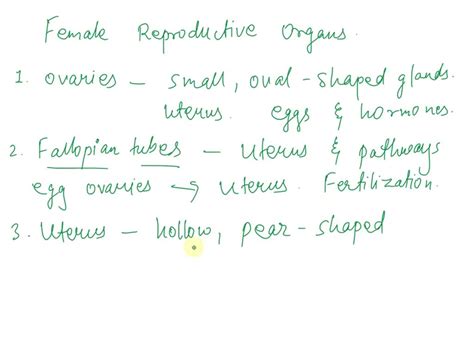 Female Reproductive Organs.
1. ovaries – small, oval-shaped glands.
uterus. eggs & hormones.
2. Fallopian tubes – Uterus & pathways
egg ovaries → uterus. Fertilization.
3. Uterus – hollow, pear-shaped